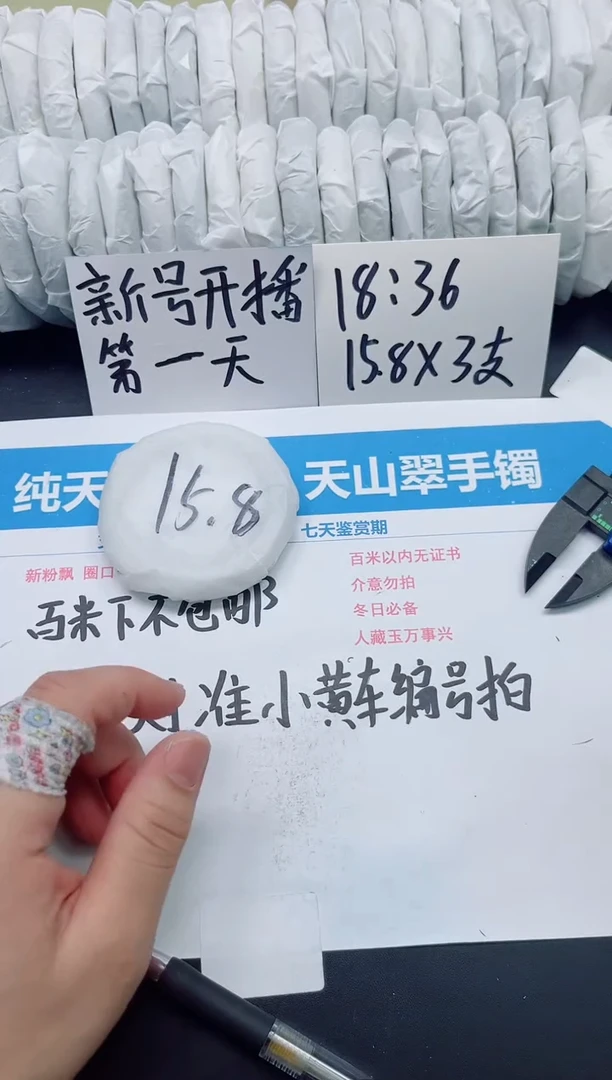 新号开播
第一天
18:36
15.8X3支
纯天
天山翠手镯
15.8
七天鉴赏期
新粉飘 圈口
百米以内无证书
介意勿拍
冬日必备
人藏玉万事兴
百米下不包邮
准小黄车编号拍